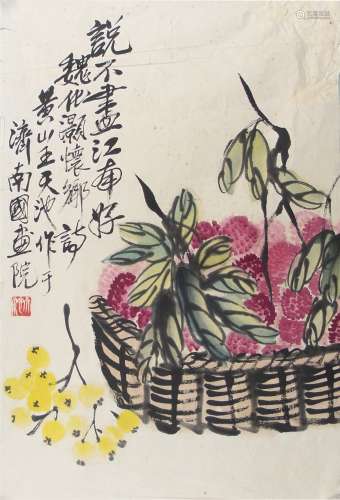 說不盡江南好
魏 灝懷鄉詩
黃山王天池作于
濟南國畫院